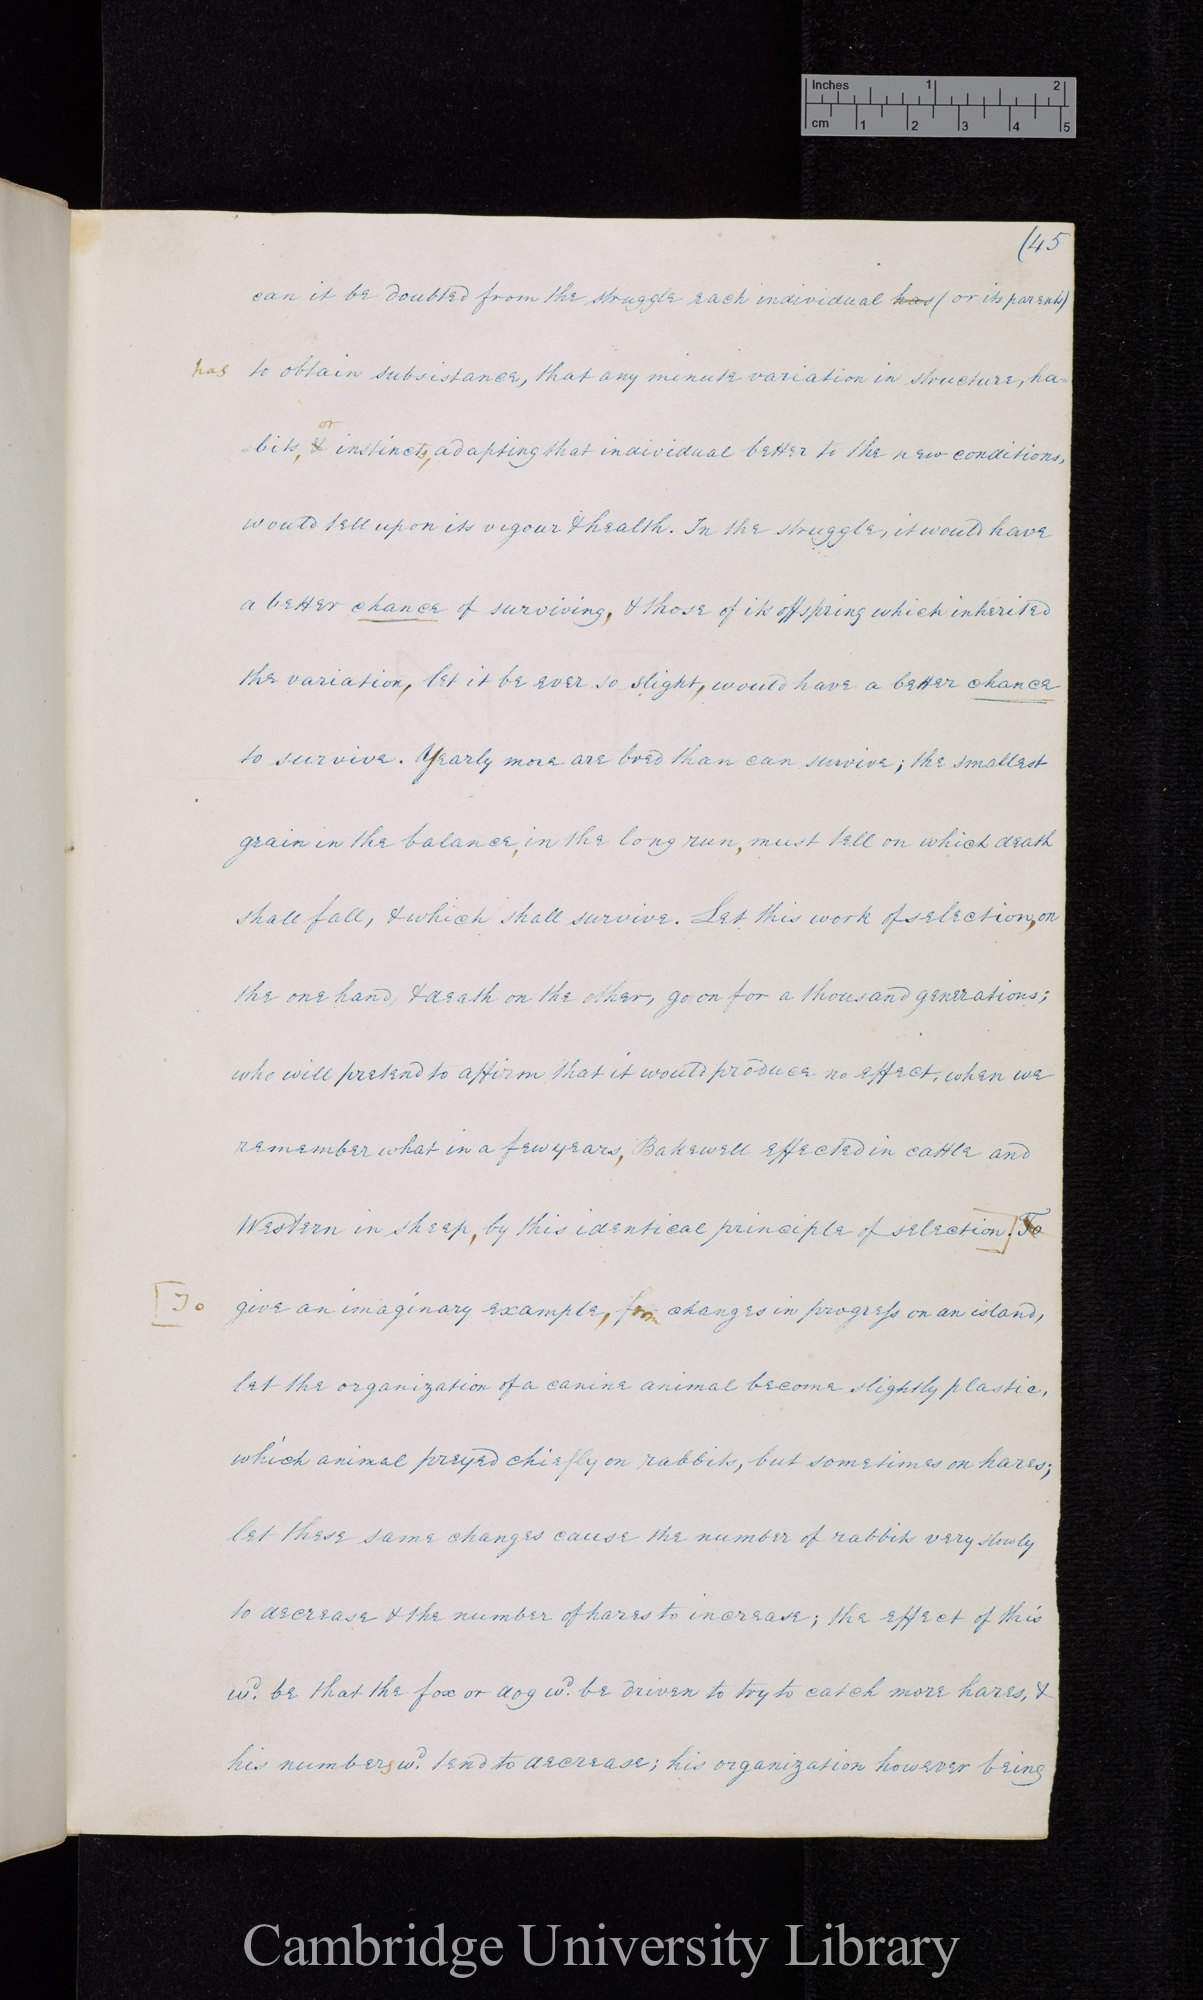 Inches 1 2
cm 1 2 3 4 5
(45
can it be doubted from the struggle each individual has (or its parents)
has to obtain subsistance, that any minute variation in structure, ha=
or
-bits, & instincts, adapting that individual better to the new conditions,
would tell upon its vigour & health. In the struggle, it would have
a better chance of surviving, & those of its offspring which inherited
the variation, let it be ever so slight, would have a better chance
to survive. Yearly more are bred than can survive; the smallest
grain in the balance, in the long run, must tell on which death
shall fall, & which shall survive. Let this work of selection, on
the one hand, & death on the other, go on for a thousand generations;
who will pretend to affirm that it would produce no effect, when we
remember what in a few years, Bakewell effected in cattle and
Western in sheep, by this identical principle of selection.] To
[To give an imaginary example, from changes in progress on an island,
let the organization of a canine animal become slightly plastic,
which animal preyed chiefly on rabbits, but sometimes on hares;
let these same changes cause the number of rabbits very slowly
to decrease & the number of hares to increase; the effect of this
wd. be that the fox or dog wd. be driven to try to catch more hares, &
his numbers wd. tend to decrease; his organization however being
Cambridge University Library